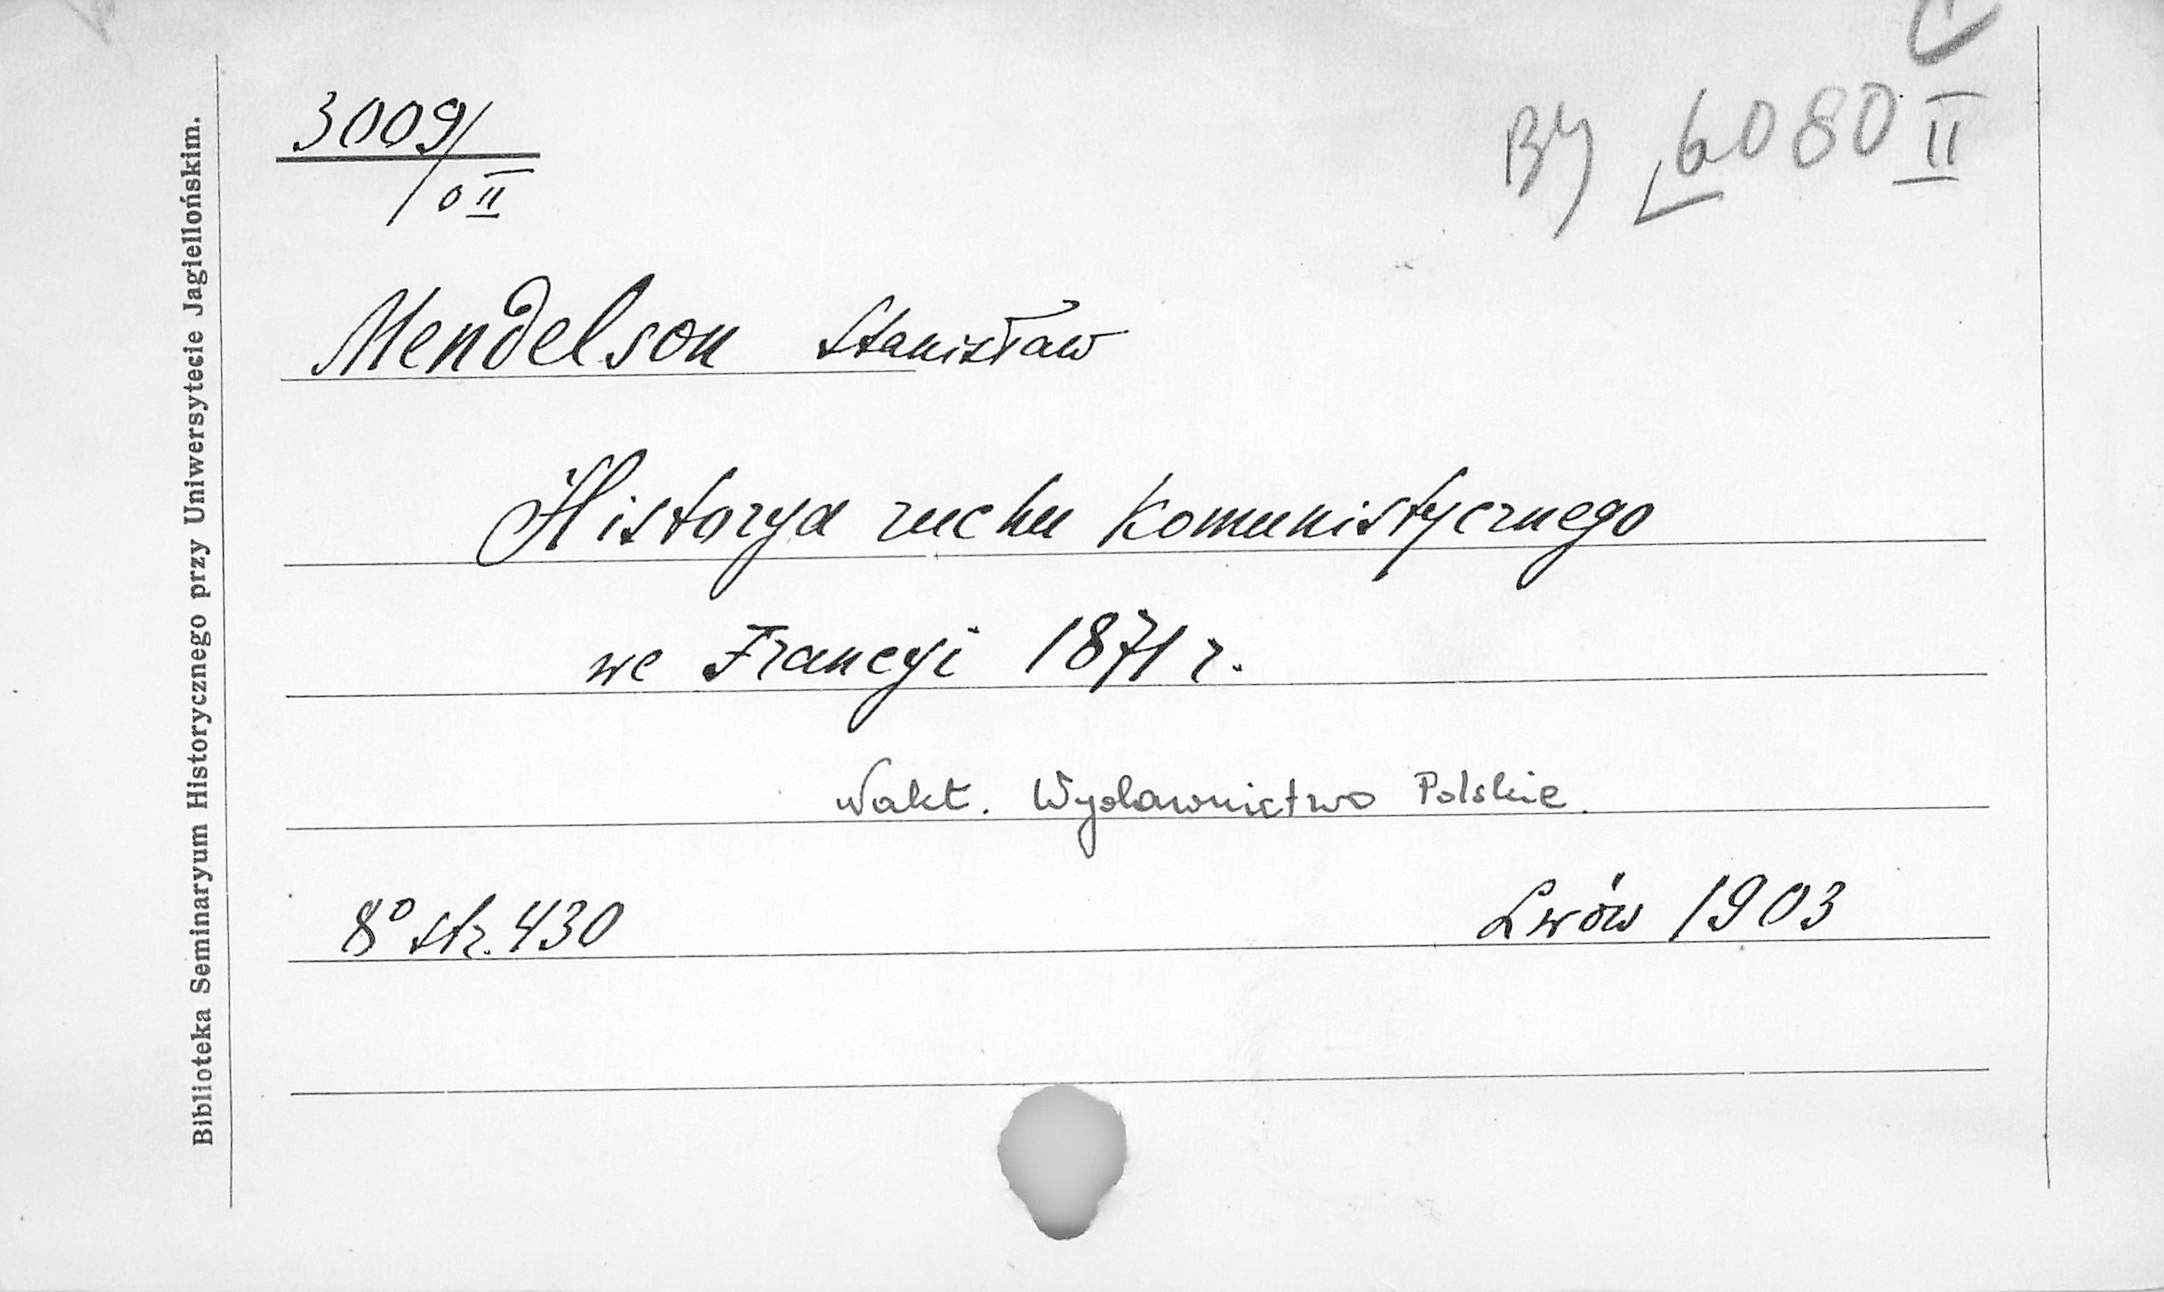 3009/
0 II
BJ 6080 II
Mendelson Stanisław
Historya ruchu komunistycznego
we Francyi 1871 r.
Nakł. Wydawnictwo Polskie.
8° str. 430
Lwów 1903
Biblioteka Seminaryum Historycznego przy Uniwersytecie Jagiellońskim.